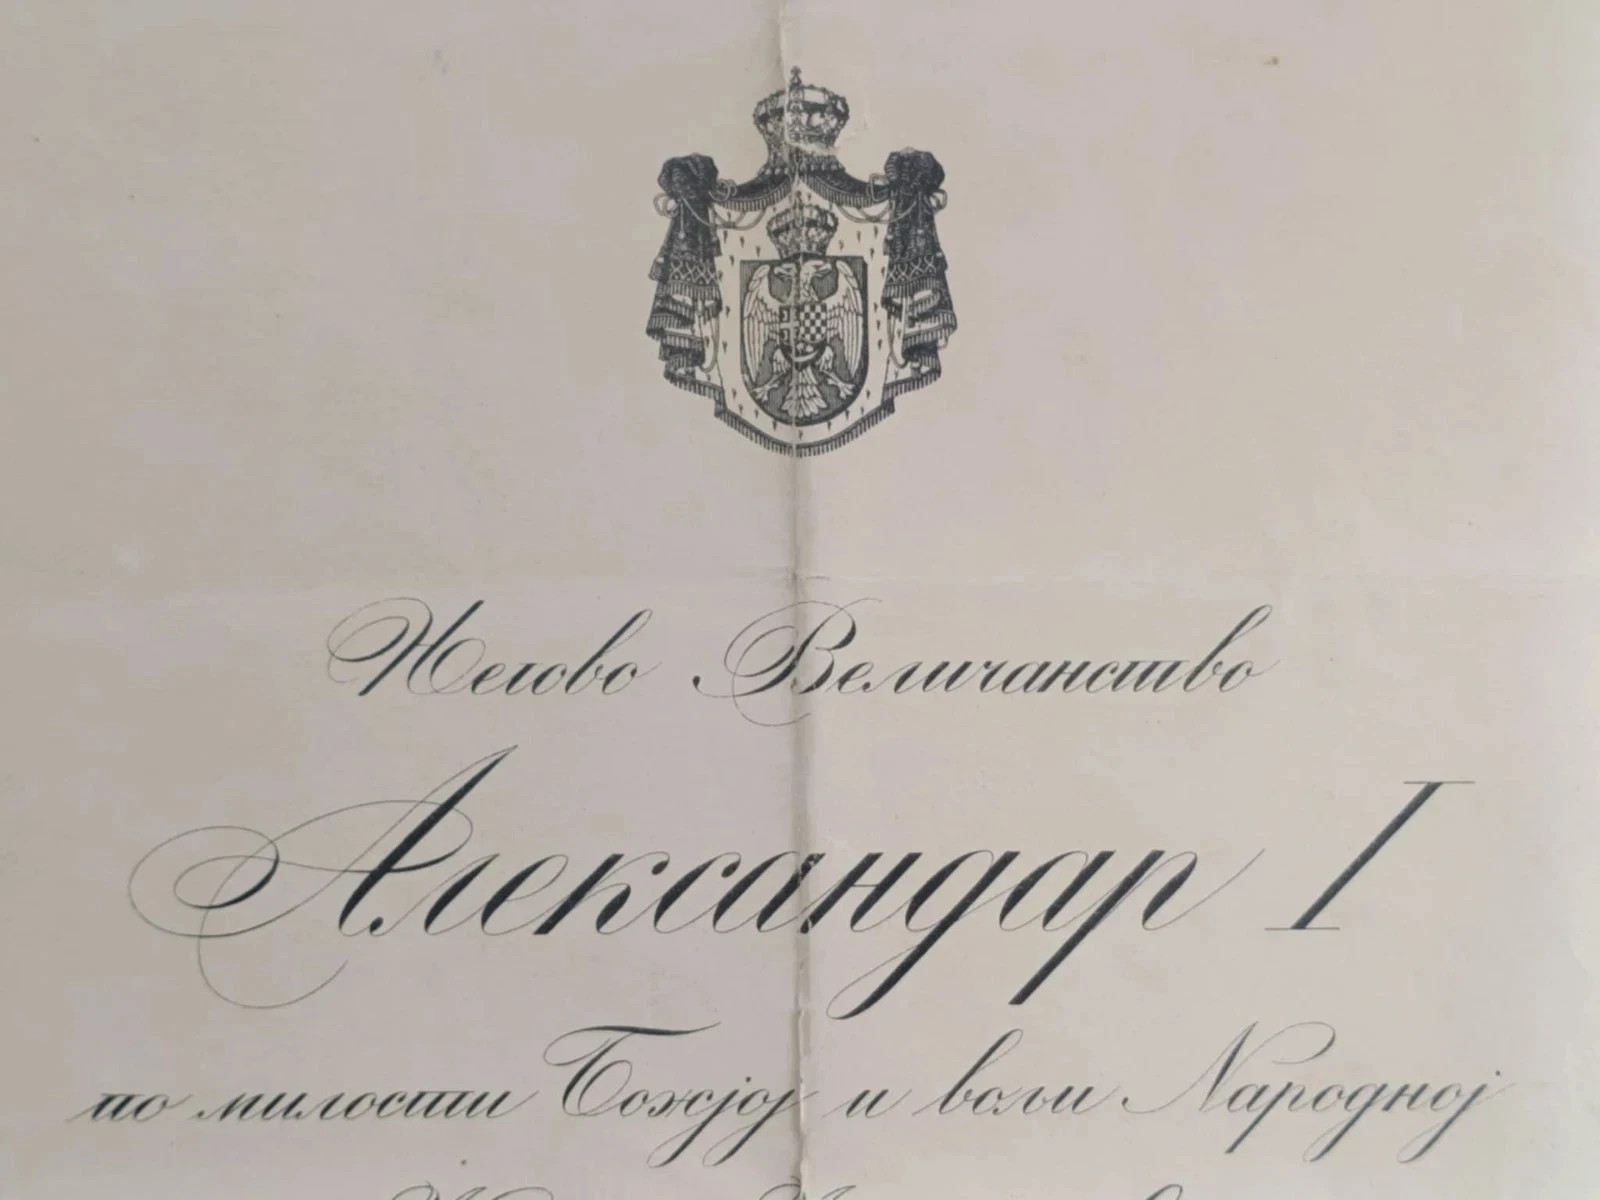 Његово Величанство
Александар I
по милости Божјој и вољи Народној